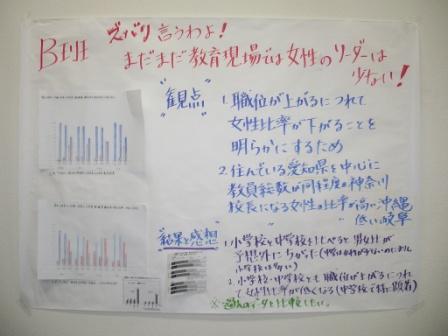 B班 ズバリ言うわよ！
まだまだ教育現場では女性のリーダーは
少ない！
"観点"
1. 職位が上がるにつれて
女性比率が下がることを
明らかにするため
2. 住んでいる愛知県を中心に
教員総数が同程度の神奈川
校長になる女性の比率が高い沖縄
〃 〃 低い岐阜
"結果と感想"
1. 小学校と中学校を比べると男女比が
予想外にちがった
小学校は高い)
2. 小学校・中学校とも職位が上がるにつれ
て女性比率が低くなる(中学校で特に顕著)
※過去のデータと比較したい。